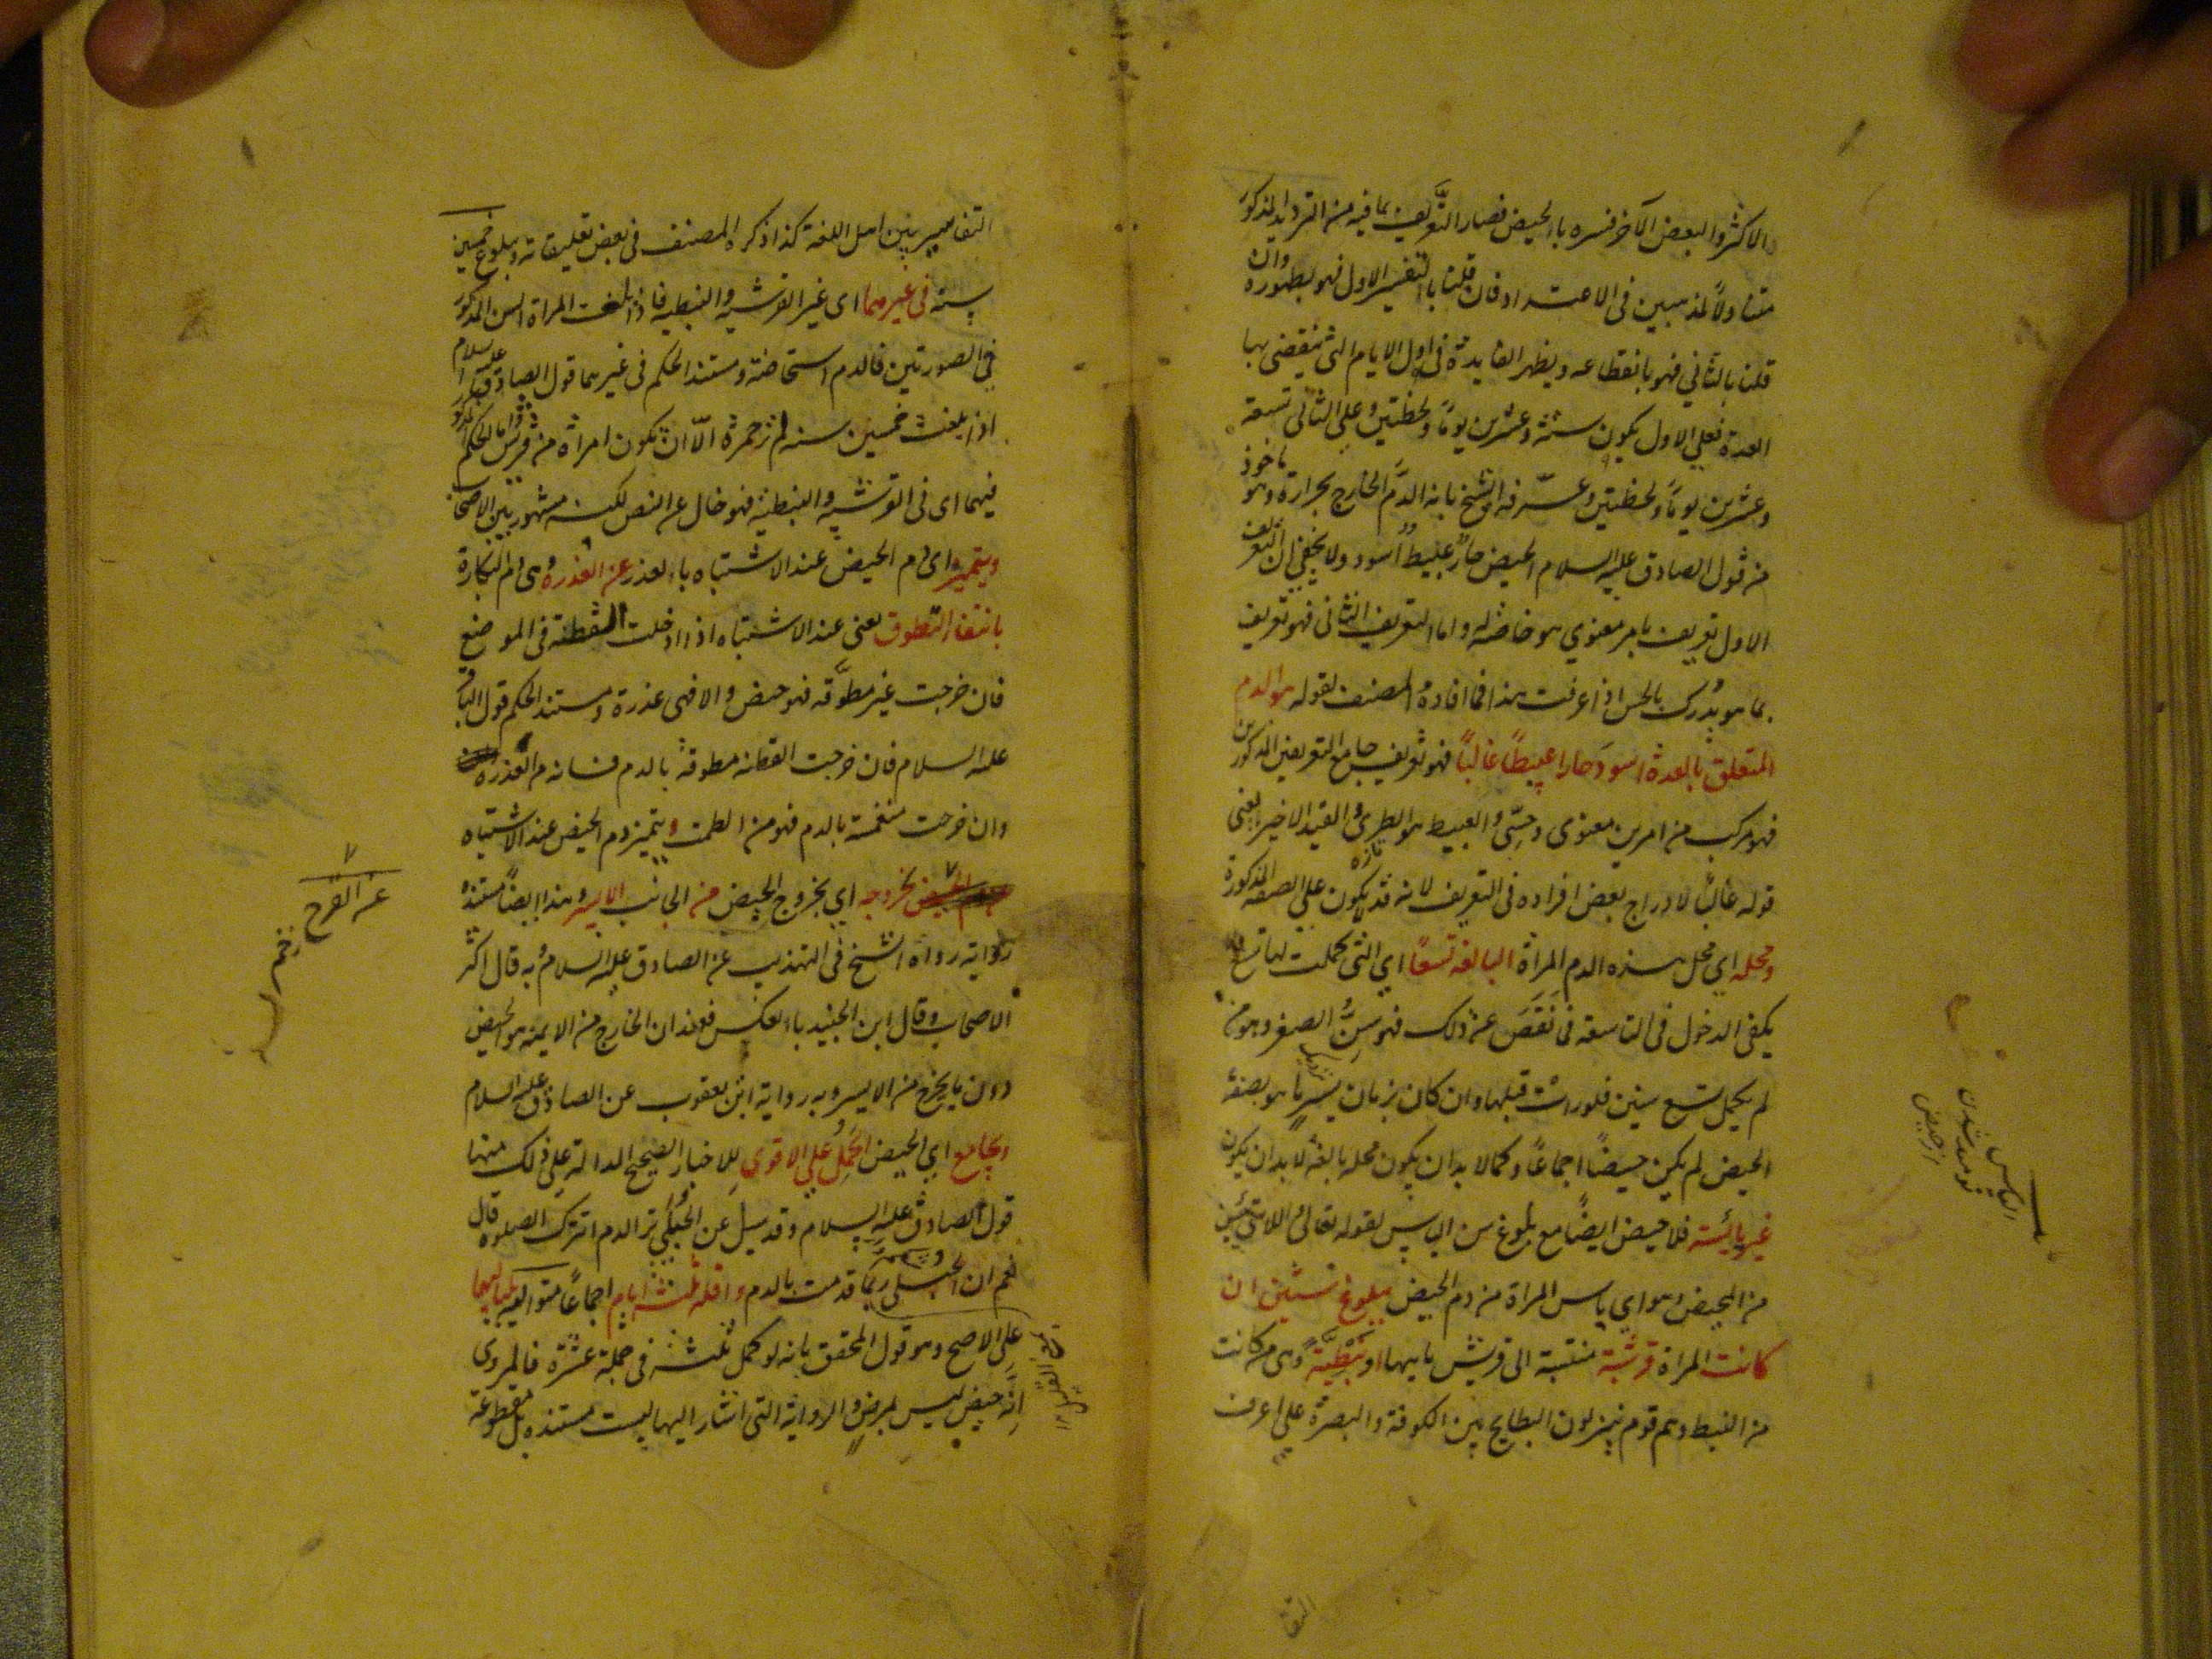 والاكثر والبعض الآخر فسره بالحيض فصار التعريف بما فيه من الترديد المذكور
متناولاً لمذهبين في الاعتداد فان قلنا بالتفسير الاول فهو بطهوره وان
قلنا بالثاني فهو بانقطاعه ويظهر الفايدة في اول الايام التي تنقضي بها
العدة فعلى الاول يكون ستة وعشرين يوماً ولحظتين وعلى الثاني تسعة
وعشرين يوماً ولحظتين وعرّفه الشيخ بانه الدّم الخارج بحرارة وهو ماخوذ
من قول الصادق عليه السلام الحيض حارٌ عبيطٌ اسود ولا يخفى ان التعريف
الاول تعريف بامر معنوي هو خاصّة له واما التعريف الثاني فهو تعريف
بما هو يُدرك بالحس اذا عرفت هذا فما افاده المصنف لقوله هو الدم
المتعلق بالعدة اسودَ حارا عبيطاً غالباً فهو تعريف جامع التعريفين المذكورين
فهو مركب من امرين معنوى وحسّى والعبيط هو الطرى والقيد الاخير يعنى
تازه
قوله غالباً لادراج بعض افراده في التعريف لانه قد لا يكون على الصفة المذكورة
ومحله اي محل هذه الدم المراة البالغة تسعاً اي التي كملت لها تسع
يكفى الدخول في التاسعة فما نَقَصَ عن ذلك فهو سِنُّ الصغر وهو من
لم يكمل تسع سنين فلو رات قبلها وان كان بزمان يسيرٍ ما هو بصفة
الحيض لم يكن حيضاً اجماعاً وكما لا بد ان يكون محله بالغة لا بد ان يكون
غير يائسة فلا حيض ايضاً مع بلوغ سن الياس لقوله تعالى واللائى يئسن
من المحيض وهو اي ياس المراة من دم الحيض ببلوغ ستين ان
كانت المراة قرشية منتسبة الى قريش بابيها او نَبَطِيَّةً وهى من كانت
من النبط وهم قوم ينزلون البطايح بين الكوفة والبصرة على اعرف
الياس
نوميد شدن
از حيض
التفا
التفاسير بين اهل اللغة كذا ذكره المصنف في بعض تعليقاته وببلوغ خمسين
سنة في غيرهما اى غير القرشيه والنبطيه فاذا بلغت المراة السن المذكور
في الصورتين فالدم استحاضة ومستند الحكم في غيرهما قول الصادق عليه السلام
اذا بلغت خمسين سنه لم تر حمرة الّا ان تكون امراة من قريش واما الحكم
فيهما اى في القرشيه والنبطية فهو خال عن النص لكنه مشهور بين الاصحاب
ويتميز اى دم الحيض عند الاشتباه بالعذر عن العذرة وهى دم البكارة
بانتفاء التطوق يعنى عند الاشتباه اذا ادخلت القطنة في الموضع
فان خرجت غير مطوّقه فهو حيض والا فهى عذرة ومستند الحكم قول الباقر
عليه السلام فان خرجت القطنه مطوقة بالدم فانه من العذرة
وان خرجت منغمسة بالدم فهو من الطمث ويتميز دم الحيض عند الاشتباه
بخروجه اي بخروج الحيض من الجانب الايسر وهذا ايضاً مستنده
رواية رواه الشيخ في التهذيب عن الصادق عليه السلام وبه قال اكثر
الاصحاب وقال ابن الجنيد بالعكس فعنده ان الخارج من الايمن هو الحيض
دون ما يخرج من الايسر وبه رواية ابن يعقوب عن الصادق عليه السلام
ويجامع اي الحيض الحمل على الاقوى للاخبار الصحيح الدالة على ذلك منها
قول الصادق عليه السلام وقد سيل عن الحُبلى ترا الدم اتترك الصلوة قال
نعم ان الحبلى ربّما قدمت بالدم واقله ثلثة ايام اجماعاً متوالية بلياليها
على الاصح وهو قول المحقق بانه لو كمل ثلثة في جملة عشرة فالمروى
انّه حيض ليس بمرضٍ والرواية التي اشار اليها ليست مستنده بل مقطوعة
عن القرح
زخم